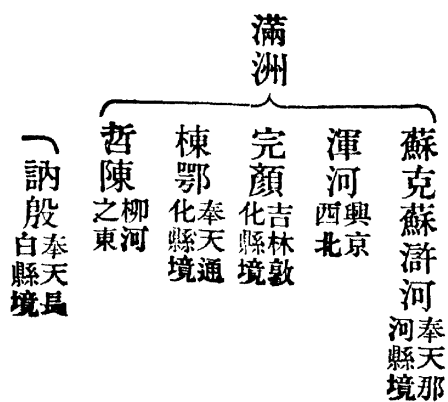 滿洲
蘇克蘇滸河 奉天那河縣境
渾河 興京西北
完顏 吉林敦化縣境
棟鄂 奉天通化縣境
哲陳 柳河之東
訥殷 奉天長白縣境